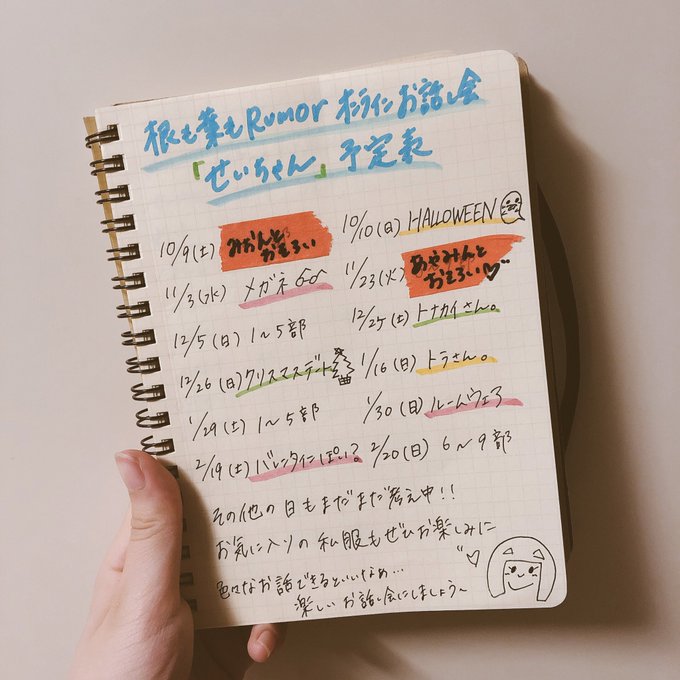 根も葉もRumor オンラインお話し会
「せいちゃん」予定表
10/9(土) みおんとおそろい
10/10(日) HALLOWEEN
11/3(水) メガネ
11/23(火) あやみんとおそろい♡
12/5(日) 1〜5部
12/25(土) トナカイさん。
12/26(日) クリスマスデート
1/16(日) トラさん。
1/29(土) 1〜5部
1/30(日) ルームウェア
2/19(土) バレンタインぽい?
2/20(日) 6〜9部
その他の日もまだまだ考え中!!
お気に入りの私服もぜひお楽しみに
色々なお話できるといいなぁ…
楽しいお話し会にしましょう〜